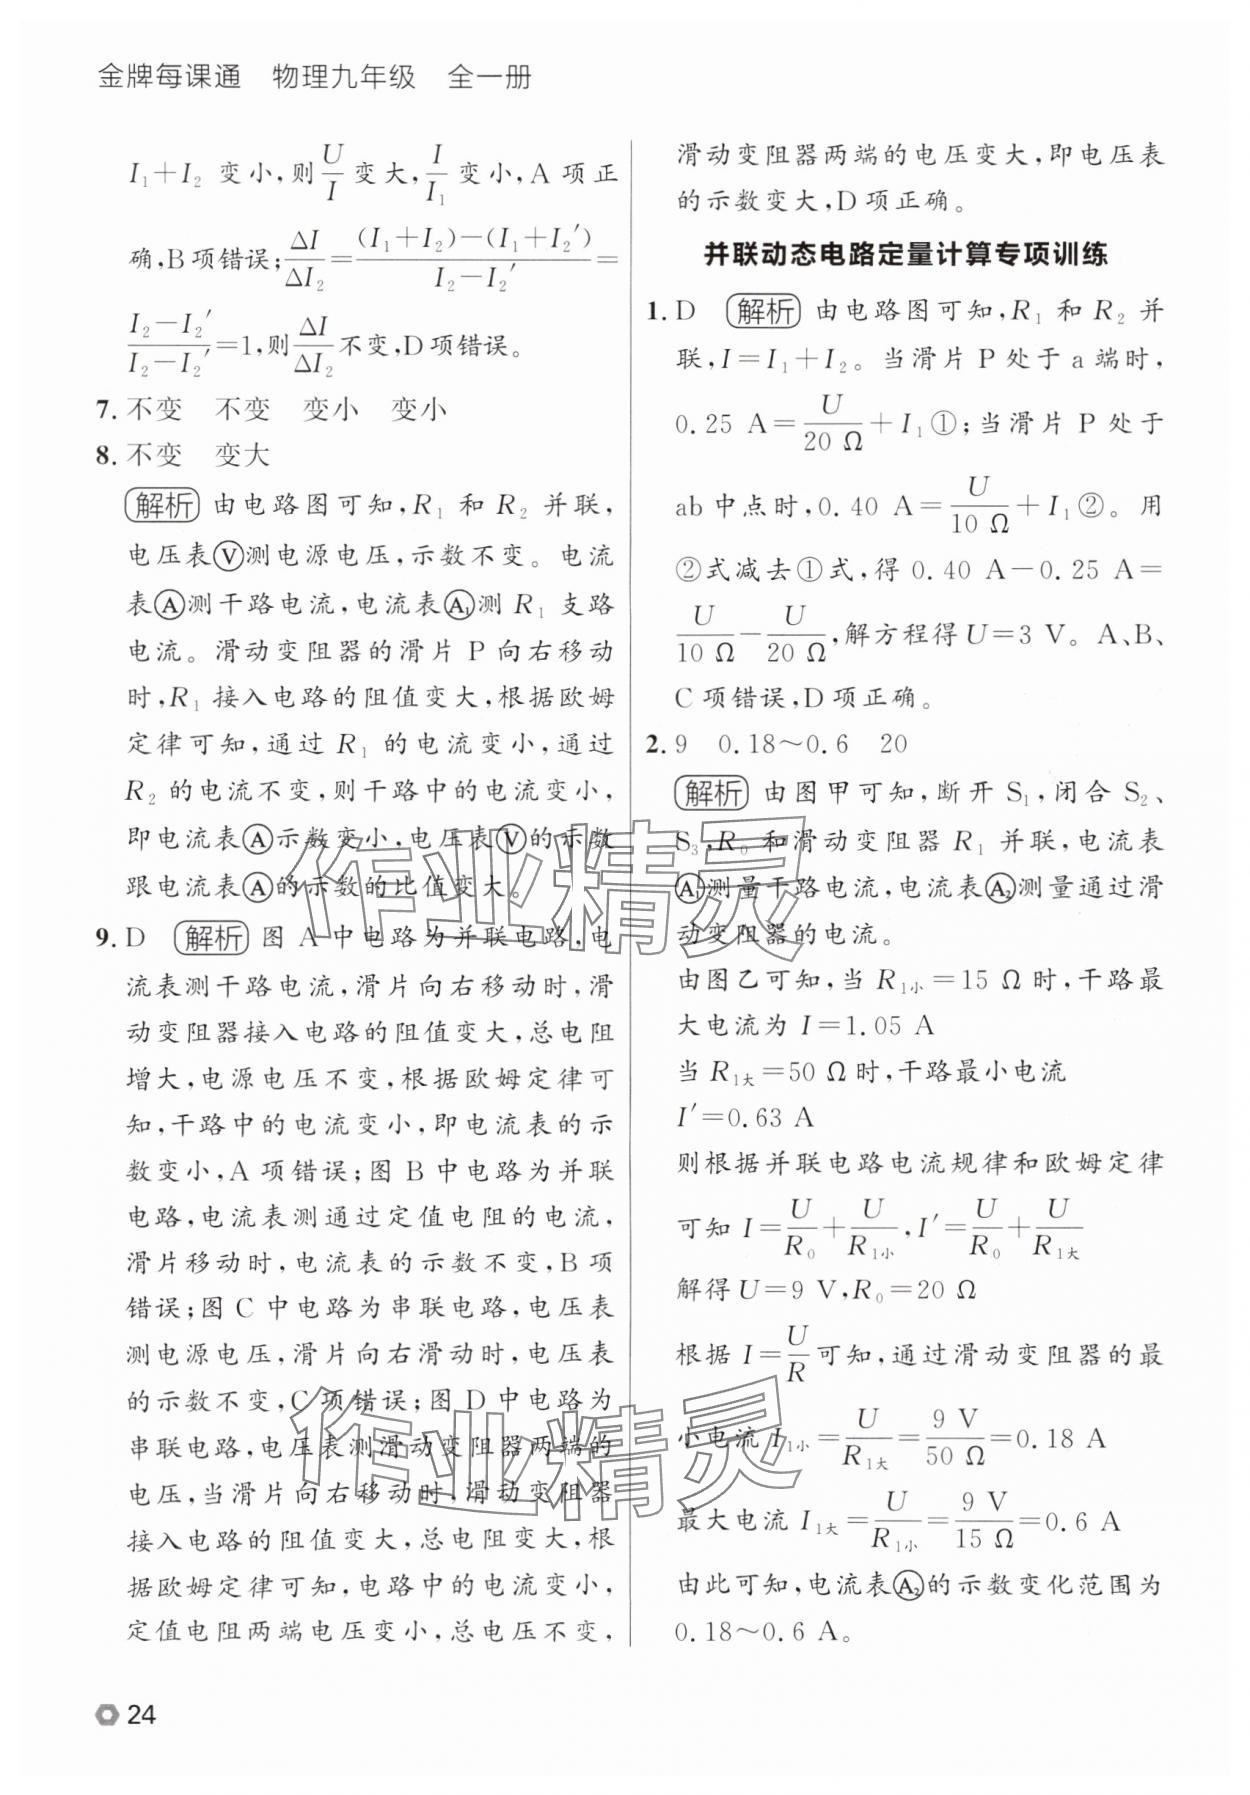 金牌每课通 物理九年级 全一册
I₁+I₂ 变小,则U/I变大,I/I₁变小,A 项正
确,B 项错误;ΔI/ΔI₂=((I₁+I₂)-(I₁+I₂′))/(I₂-I₂′)=
(I₂-I₂′)/(I₂-I₂′)=1,则ΔI/ΔI₂不变,D 项错误。
7. 不变 不变 变小 变小
8. 不变 变大
解析 由电路图可知,R₁ 和 R₂ 并联,
电压表Ⓥ测电源电压,示数不变。电流
表Ⓐ测干路电流,电流表(A₁)测 R₁ 支路
电流。滑动变阻器的滑片 P 向右移动
时,R₁ 接入电路的阻值变大,根据欧姆
定律可知,通过 R₁ 的电流变小,通过
R₂ 的电流不变,则干路中的电流变小,
即电流表Ⓐ示数变小,电压表Ⓥ的示数
跟电流表Ⓐ的示数的比值变大。
9. D 解析 图 A 中电路为并联电路,电
流表测干路电流,滑片向右移动时,滑
动变阻器接入电路的阻值变大,总电阻
增大,电源电压不变,根据欧姆定律可
知,干路中的电流变小,即电流表的示
数变小,A 项错误;图 B 中电路为并联
电路,电流表测通过定值电阻的电流,
滑片移动时,电流表的示数不变,B 项
错误;图 C 中电路为串联电路,电压表
测电源电压,滑片向右滑动时,电压表
的示数不变,C 项错误;图 D 中电路为
串联电路,电压表测滑动变阻器两端的
电压,当滑片向右移动时,滑动变阻器
接入电路的阻值变大,总电阻变大,根
据欧姆定律可知,电路中的电流变小,
定值电阻两端电压变小,总电压不变,
滑动变阻器两端的电压变大,即电压表
的示数变大,D 项正确。
并联动态电路定量计算专项训练
1. D 解析 由电路图可知,R₁ 和 R₂ 并
联,I=I₁+I₂。当滑片 P 处于 a 端时,
0.25 A=U/20 Ω+I₁①;当滑片 P 处于
ab 中点时,0.40 A=U/10 Ω+I₁②。用
②式减去①式,得 0.40 A-0.25 A=
U/10 Ω-U/20 Ω,解方程得U=3 V。A、B、
C 项错误,D 项正确。
2. 9 0.18~0.6 20
解析 由图甲可知,断开 S₁,闭合 S₂、
S₃,R₀ 和滑动变阻器 R₁ 并联,电流表
(A₁)测量干路电流,电流表(A₂)测量通过滑
动变阻器的电流。
由图乙可知,当 R₁小=15 Ω时,干路最
大电流为 I=1.05 A
当 R₁大=50 Ω时,干路最小电流
I′=0.63 A
则根据并联电路电流规律和欧姆定律
可知 I=U/R₀+U/R₁小,I′=U/R₀+U/R₁大
解得U=9 V,R₀=20 Ω
根据 I=U/R可知,通过滑动变阻器的最
小电流 I₁小=U/R₁大=9 V/50 Ω=0.18 A
最大电流 I₁大=U/R₁小=9 V/15 Ω=0.6 A
由此可知,电流表(A₂)的示数变化范围为
0.18~0.6 A。
作业精灵
作业精灵
24